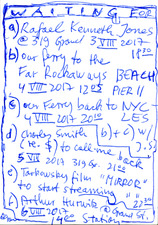 WAITING FOR
a) Rafael Kenneth Jones
@ 319 Grand 3 VIII 2017
b) our ferry to the
Far Rockaways BEACH
4 VIII 2017 PIER 11
c) our ferry back to NYC
4 VIII 2017 LES
d) Charles Smith b) + c) w/
(re: $) to call me back J.S.
5 2017 319 Gr.
e) Tarkovsky film "MIRROR"
to start streaming
f) Arthur Hurwitz @ Grand St.
6 VIII 2017 Station